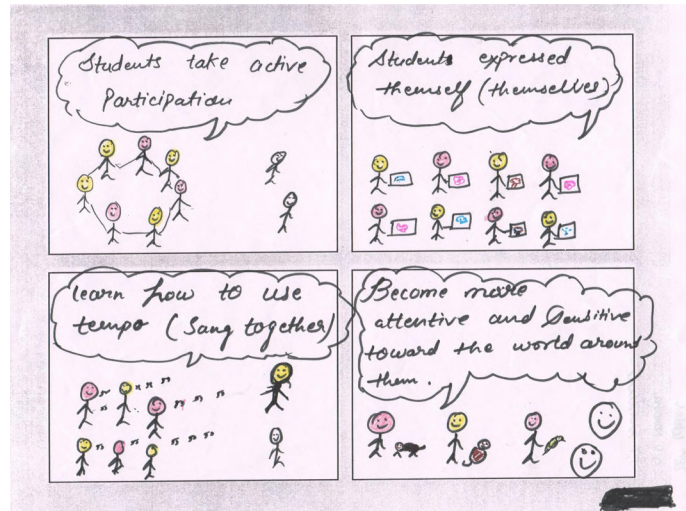 Students take active
Participation
Students expressed
themself (themselves)
learn how to use
tempo (Sang together)
Become more
attentive and Sensitive
toward the world around
them.